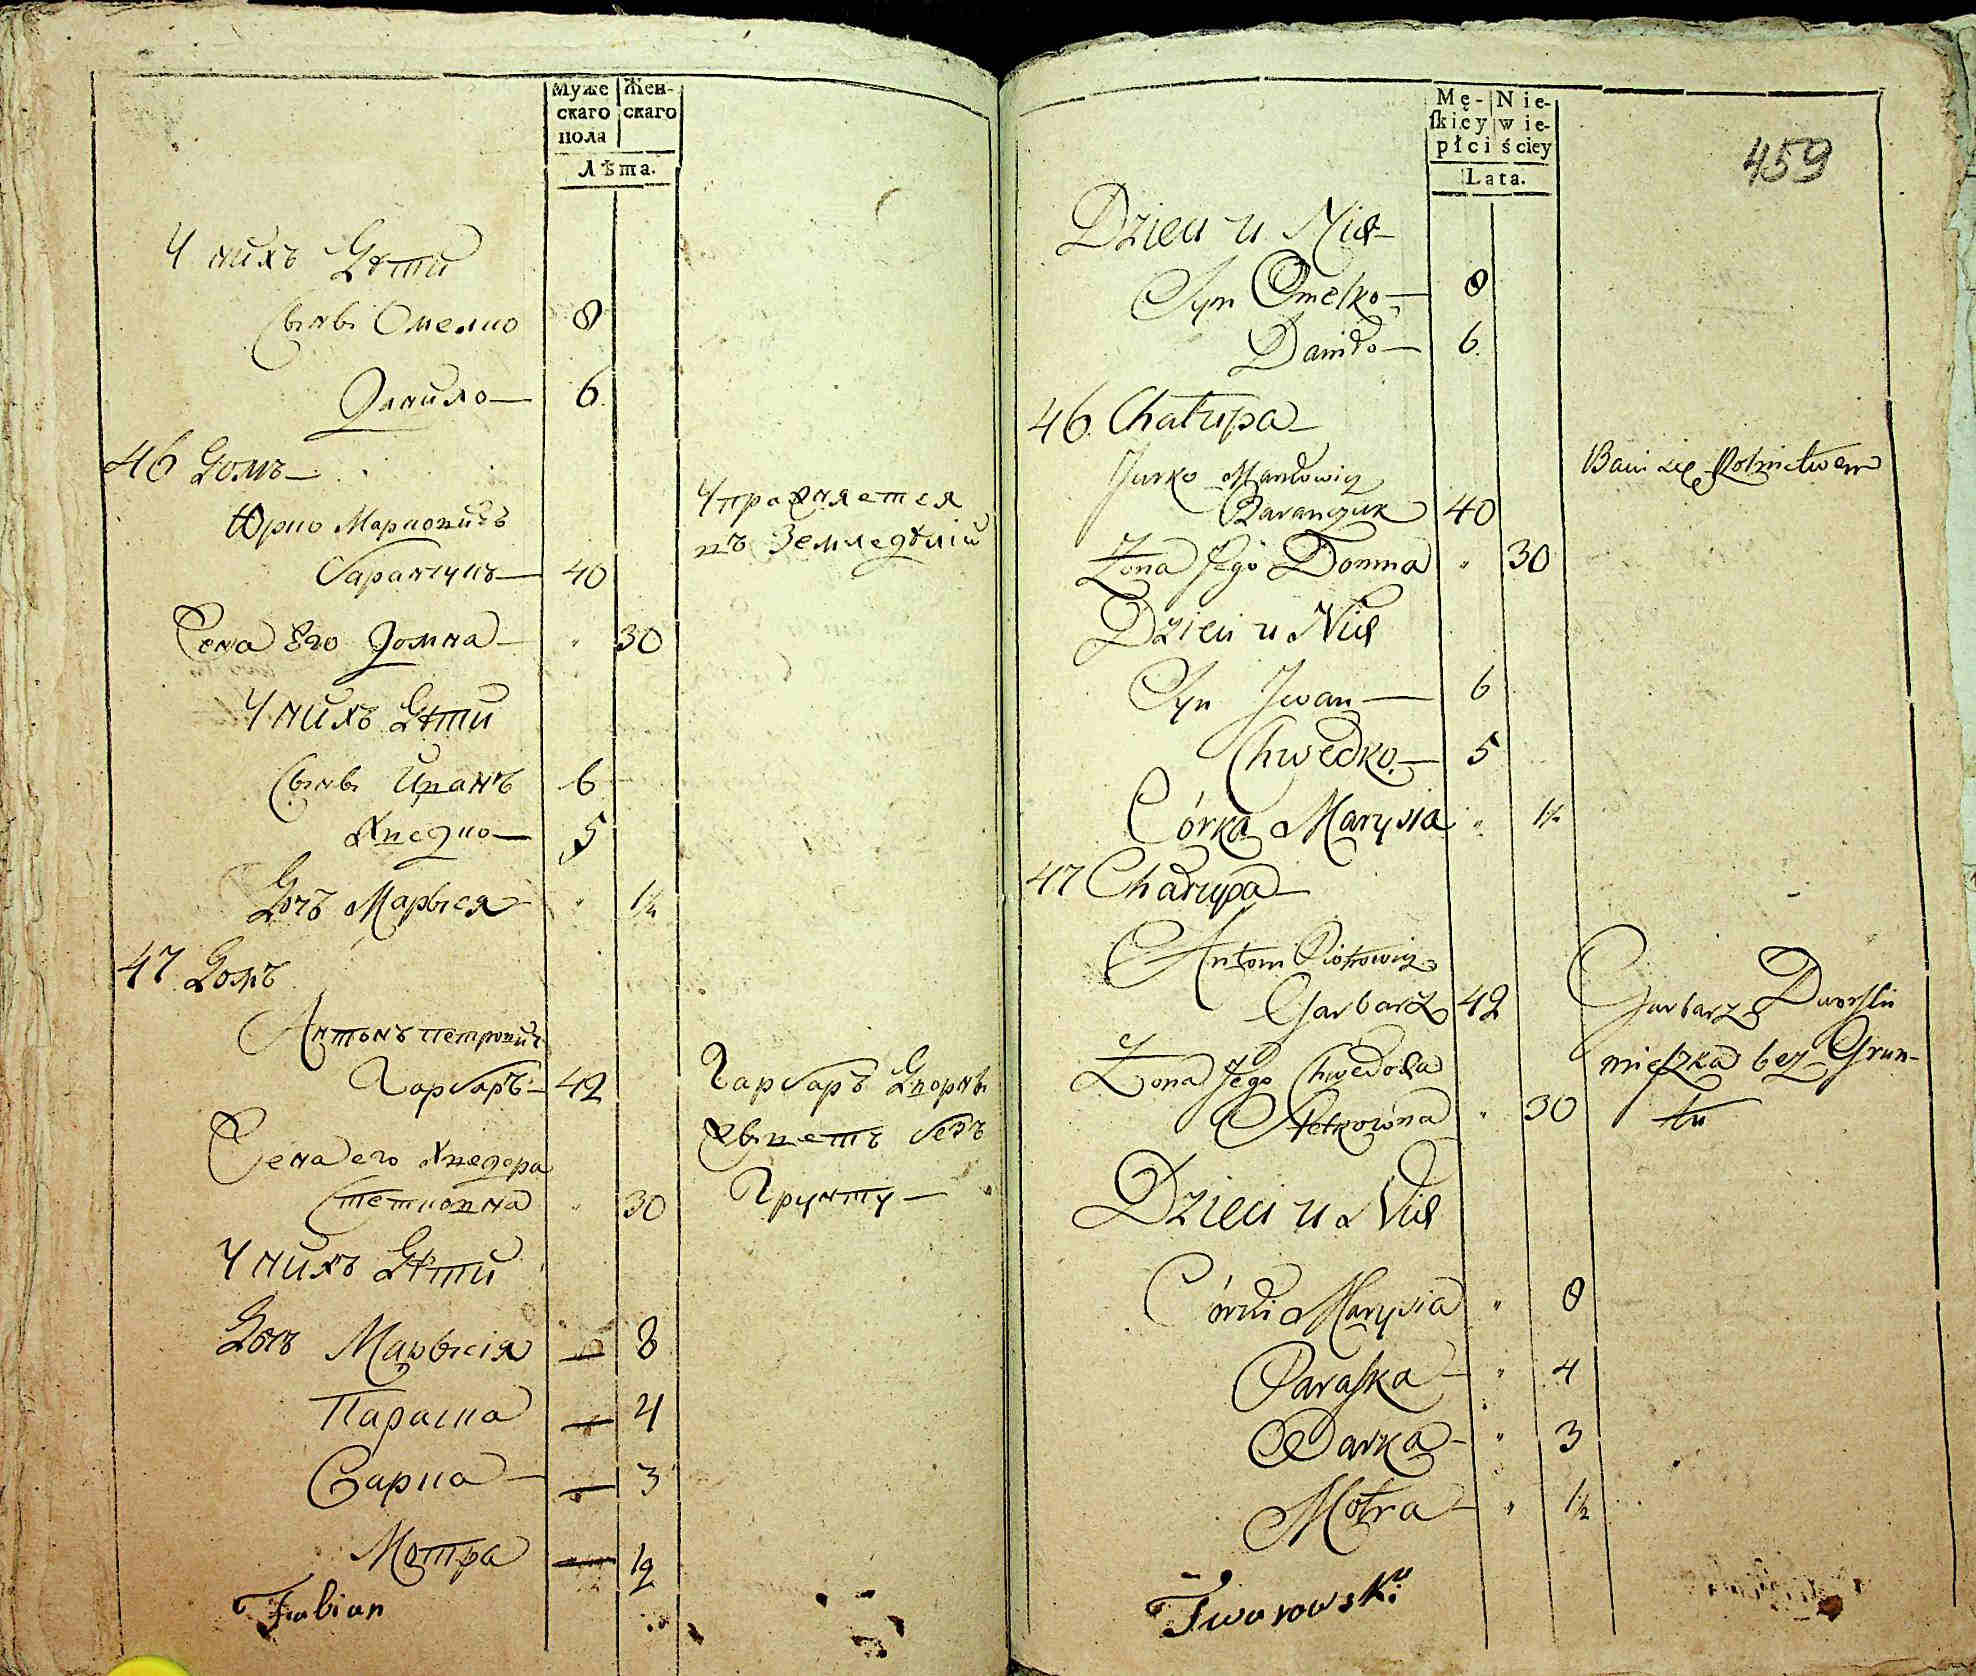 Муже Жен-
скаго скаго
пола
Лѣта.
У нихъ Дѣти
Сынъ Омелко 8
Данило 6
46 Домъ
Юрко Марковичъ
Упражняется
Баранчукъ 40
въ Земледѣліи
Жена Его Домна " 30
У нихъ Дѣти
Сынъ Иванъ 6
Хведко 5
Дочь Марыся " 1½
47 Домъ
Антонъ Петровичъ
Гарбаръ 42
Гарбаръ Дворный
Жена его Хведора
Живетъ безъ
Стетковна " 30
Грунту
У нихъ Дѣти
Дочь Марысія 8
Параска 4
Дарка 3
Мотра 1½
Fabian
Mę- Nie-
ſkiey wie-
płci ściey
Lata.
459
Dzieci u Nich
Syn Omelko 8
Daniło 6
46. Chałupa
Jurko Markowicz
Bawi się Rolnictwem
Baranczuk 40
Zona Jego Domna " 30
Dzieci u Nich
Syn Jwan 6
Chwedko 5
Córka Marysia " 1½
47 Chałupa
Antoni Piotrowicz
Garbarz 42
Garbarz Dworski
Zona Jego Chwedora
mieszka bez Grun-
Stetkowna " 30
tu
Dzieci u Nich
Córki Marysia " 8
Paraska " 4
Darka " 3
Motra " 1½
Jworowski